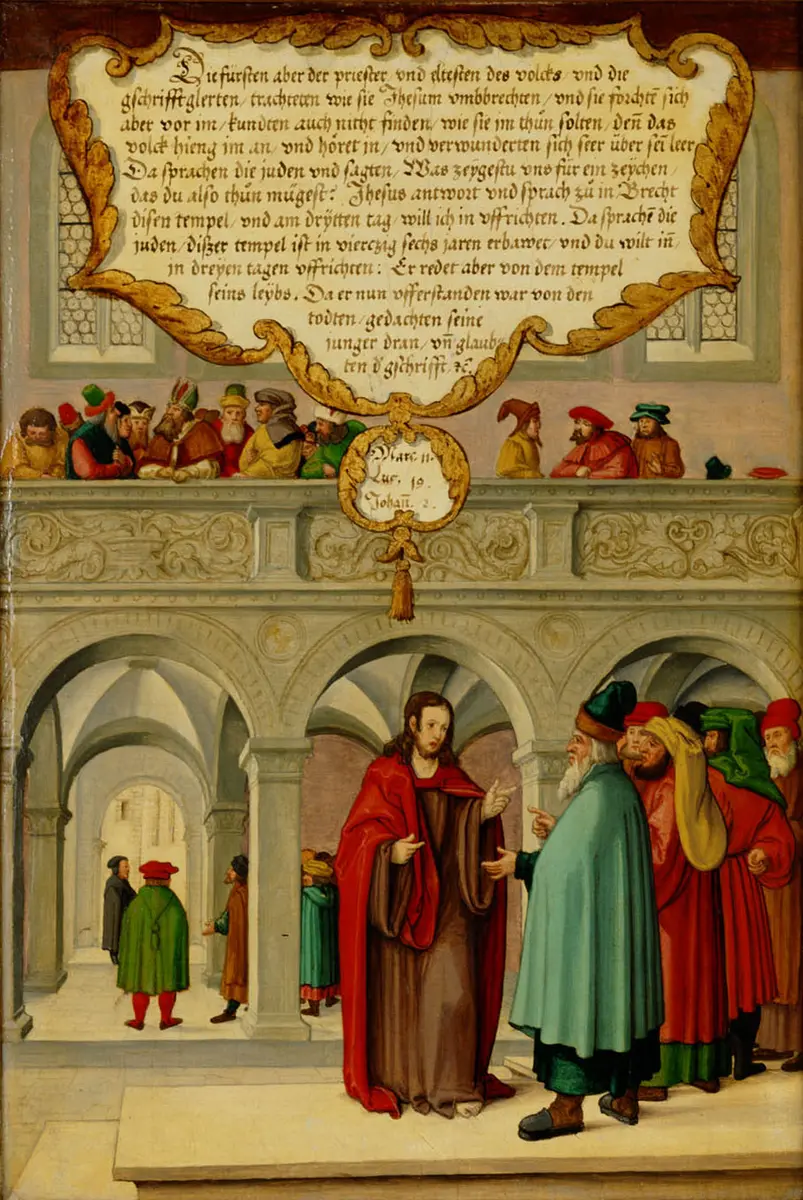 Die fürsten aber der priester, vnd eltesten des volcks, vnd die
gschrifftglerten, trachteten wie sie Jhesum vmbbrechten, vnd sie forchtē sich
aber vor im, kundten auch nitht finden, wie sie im thůn solten, deñ das
volck hieng im an, vnd höret in, vnd verwunderten sich seer über sei leer
Da sprachen die juden vnd sagten, Was zeygestu vns für ein zeychen,
das du also thůn mügest: Jhesus antwort vnd sprach zů in Brecht
disen tempel, vnd am drytten tag, will ich in vffrichten. Da sprachē die
juden, diszer tempel ist in vierczig sechs jaren erbawet, vnd du wilt iñ,
in dreyen tagen vffrichten: Er redet aber von dem tempel
seins leybs. Da er nun vfferstanden war von den
todten, gedachten seine
junger dran, vñ glaub
ten d' gschrifft, ⁊c.
Marc. 11.
Luc. 19.
Johañ. 2.